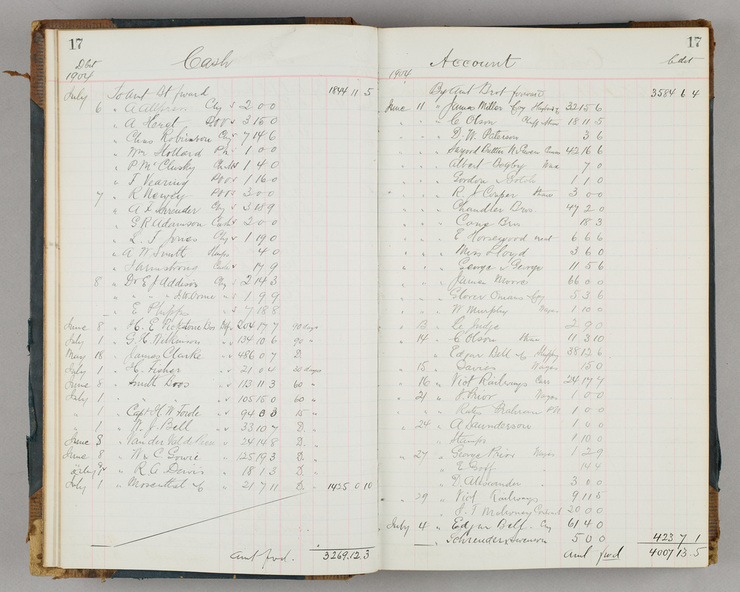 17
Cash
1904
July To Amt Bt forward 1844 11 5
6 " A Allman Chq " 2 0 0
" A Hergt " 3 15 0
" Chas Robinson Chq " 7 14 6
" Wm Hollard " 1 0 0
" P McClusky " 1 4 0
" J Nearing " 1 16 0
7 " K Newey " 3 0 0
" A L Shrouder Chq " 3 18 9
" G R Adamson " 2 0 0
" L J Jones Chq " 1 19 0
" A W Smith Stamps 4 0
" J Armstrong 17 9
8 " Dr E J Addison Chq " 2 14 3
" 1 9 9
" E Phipps " 7 18 8
June 8 " 204 17 7 90 days
July 1 " G. H. Wilkinson " 134 10 6 90 "
May 18 " James Clarke " 486 0 7 D
July 1 " H. Fisher " 21 0 4 30 days
June 8 " Smith Bros " 113 11 3 60 "
July 1 " " 105 15 0 60 "
" " Capt H W Towle " 94 3 3 15 "
" 1 " W. J. Bell " 33 10 7 D "
June 3 " " 24 14 8 D "
June 8 " Wm C Gowie " 125 19 3 D "
" R G Davis " 18 1 3 D "
July 1 " Mosenthal & Co " 21 7 11 D " 1425 0 10
Amt fwd. 3269.12.3
17
Account
1904
By Amt Brot forward 3584 6 4
June 11 " James Miller & Coy 32 15 6
" " " C Olson 18 11 5
" " " D. W. Paterson 3 6
" " " 42 16 6
" " " Albert Bayley 7 0
" " " Gordon & Gotch 1 1 0
" " " R J Cooper 3 0 0
" " " Chandler Bros 47 2 0
" " " Cong Bros 18 3
" " " E Horsewood 6 6 6
" " " Miss Lloyd 3 6 0
" " " George & George 11 5 6
" " " James Moore 66 0 0
" " " 5 3 6
" " " W Murphy Wages 1 10 0
" 13 " C Judge 2 9 0
" 14 " C Olson 11 3 10
" " " Edgar Bell & Co 38 12 6
" 15 " Davies Wages 15 0
" 16 " Vict Railways 24 17 9
" 21 " J Prior Wages 1 0 0
" " " 1 0 0
" 24 " A Saunderson 1 4 0
" " " Stamps 1 10 0
" 27 " George Prior Wages 1 2 9
" " " E Goff 14 4
" " " D. Alexander 3 0 0
" 29 " Vict Railways 9 11 5
" " " J. T. Moloney 20 0 0
July 4 " Edgar Bell & Coy 61 4 0
" " Schreuder & Swenson 5 0 0 423 7 1
Amt fwd 4007 13.5